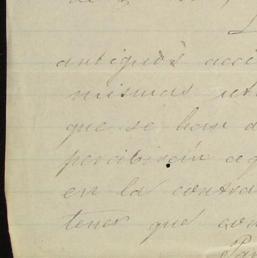 antiguos acci
mismas
que se han
percibirán
en la contra
tener que con
Pa